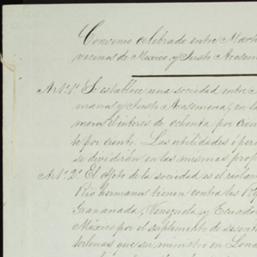 Convenio celebrado entre Mart
vecinos de Mexico y Justo Arosemen
Art. 1º Se establece una sociedad entre
manos y Justo Arosemena, en la
mos el interes de ochenta por cien
to por ciento. Las utilidades ó per
se dividirán en las mismas prop
Art. 2º El objeto de la sociedad es el reclam
Rio hermanos tienen contra las
Grananada, Venezuela y Ecuador
México por el suplemento de sesenta
terlinas que su ministro en Lond